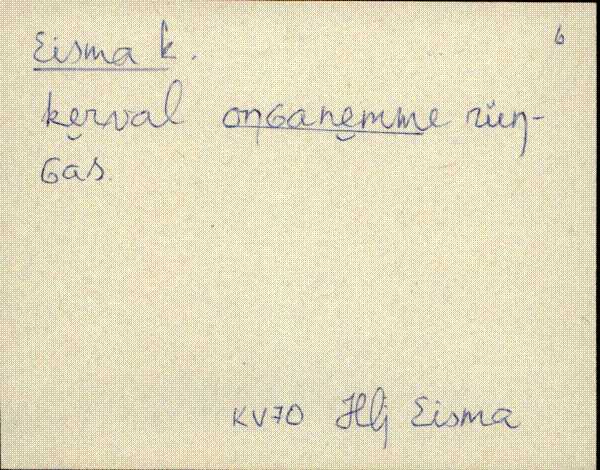 6
Eisma k.
kĕrval oŋGanĕmme rüŋ-
Gas.
KV70 Hlj Eisma